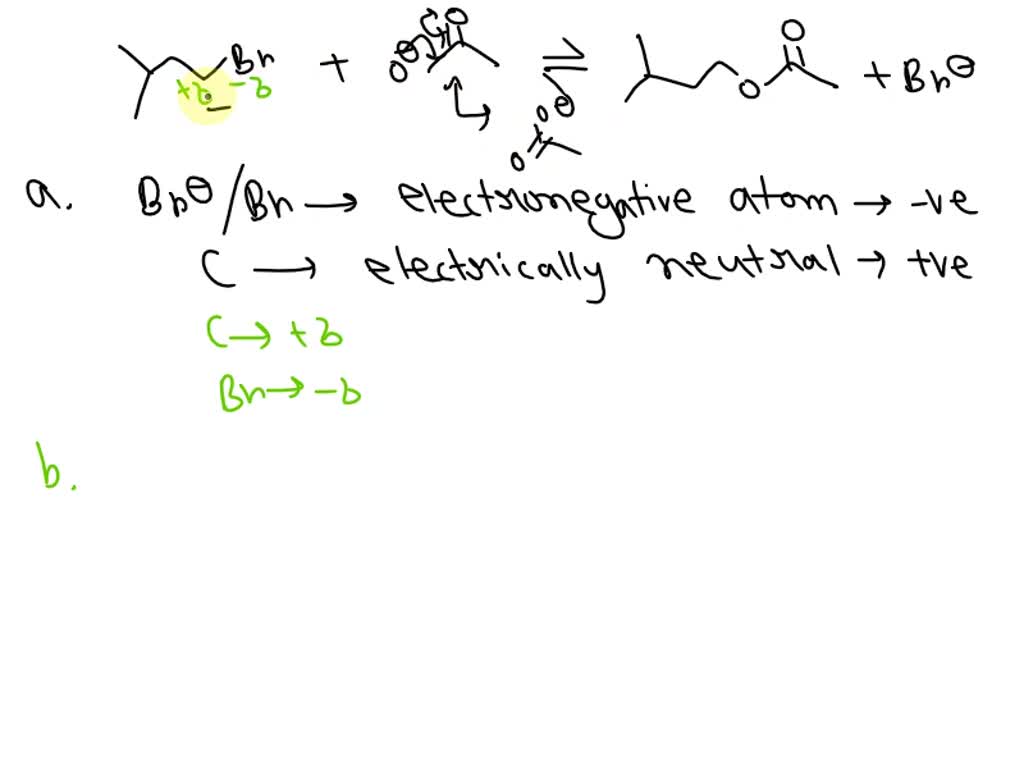 Br + O⊖ O ⇌ O O + Br⊖
+δ -δ
O⊖
O
a. Br⊖/Br → electronegative atom → -ve
C → electrically neutral → +ve
C → +δ
Br → -δ
b.